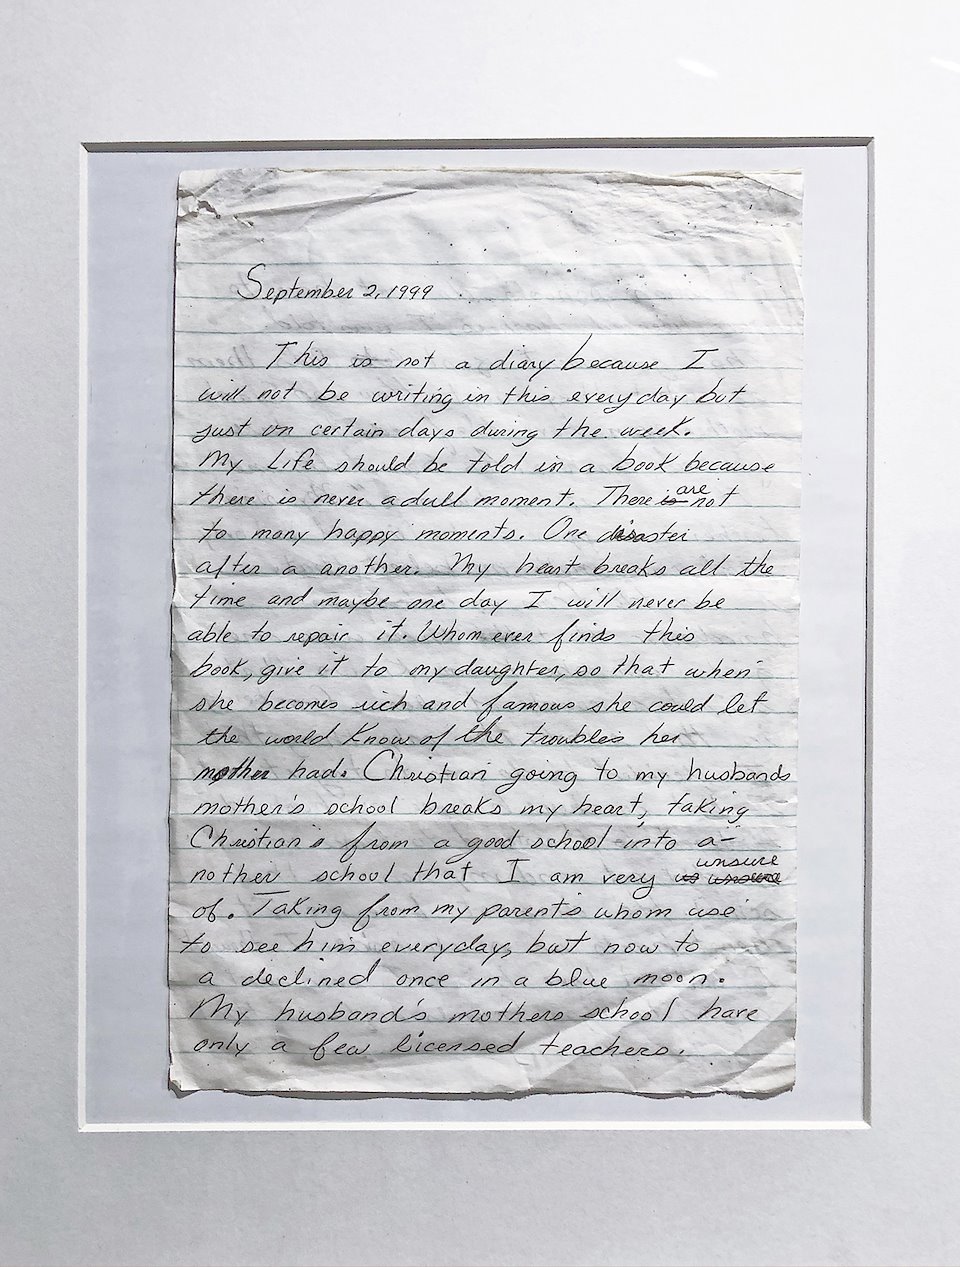 September 2, 1999
This is not a diary because I
will not be writing in this everyday but
just on certain days during the week.
My Life should be told in a book because
there is never a dull moment. There is are not
to many happy moments. One disaster
after a another. My heart breaks all the
time and maybe one day I will never be
able to repair it. Whom ever finds this
book, give it to my daughter, so that when
she becomes rich and famous she could let
the world know of the troubles her
mother had. Christian going to my husbands
mother's school breaks my heart, taking
Christian's from a good school into a-
nother school that I am very unsure
of. Taking from my parents whom use
to see him everyday, but now to
a declined once in a blue moon.
My husband's mothers school have
only a few licensed teachers.